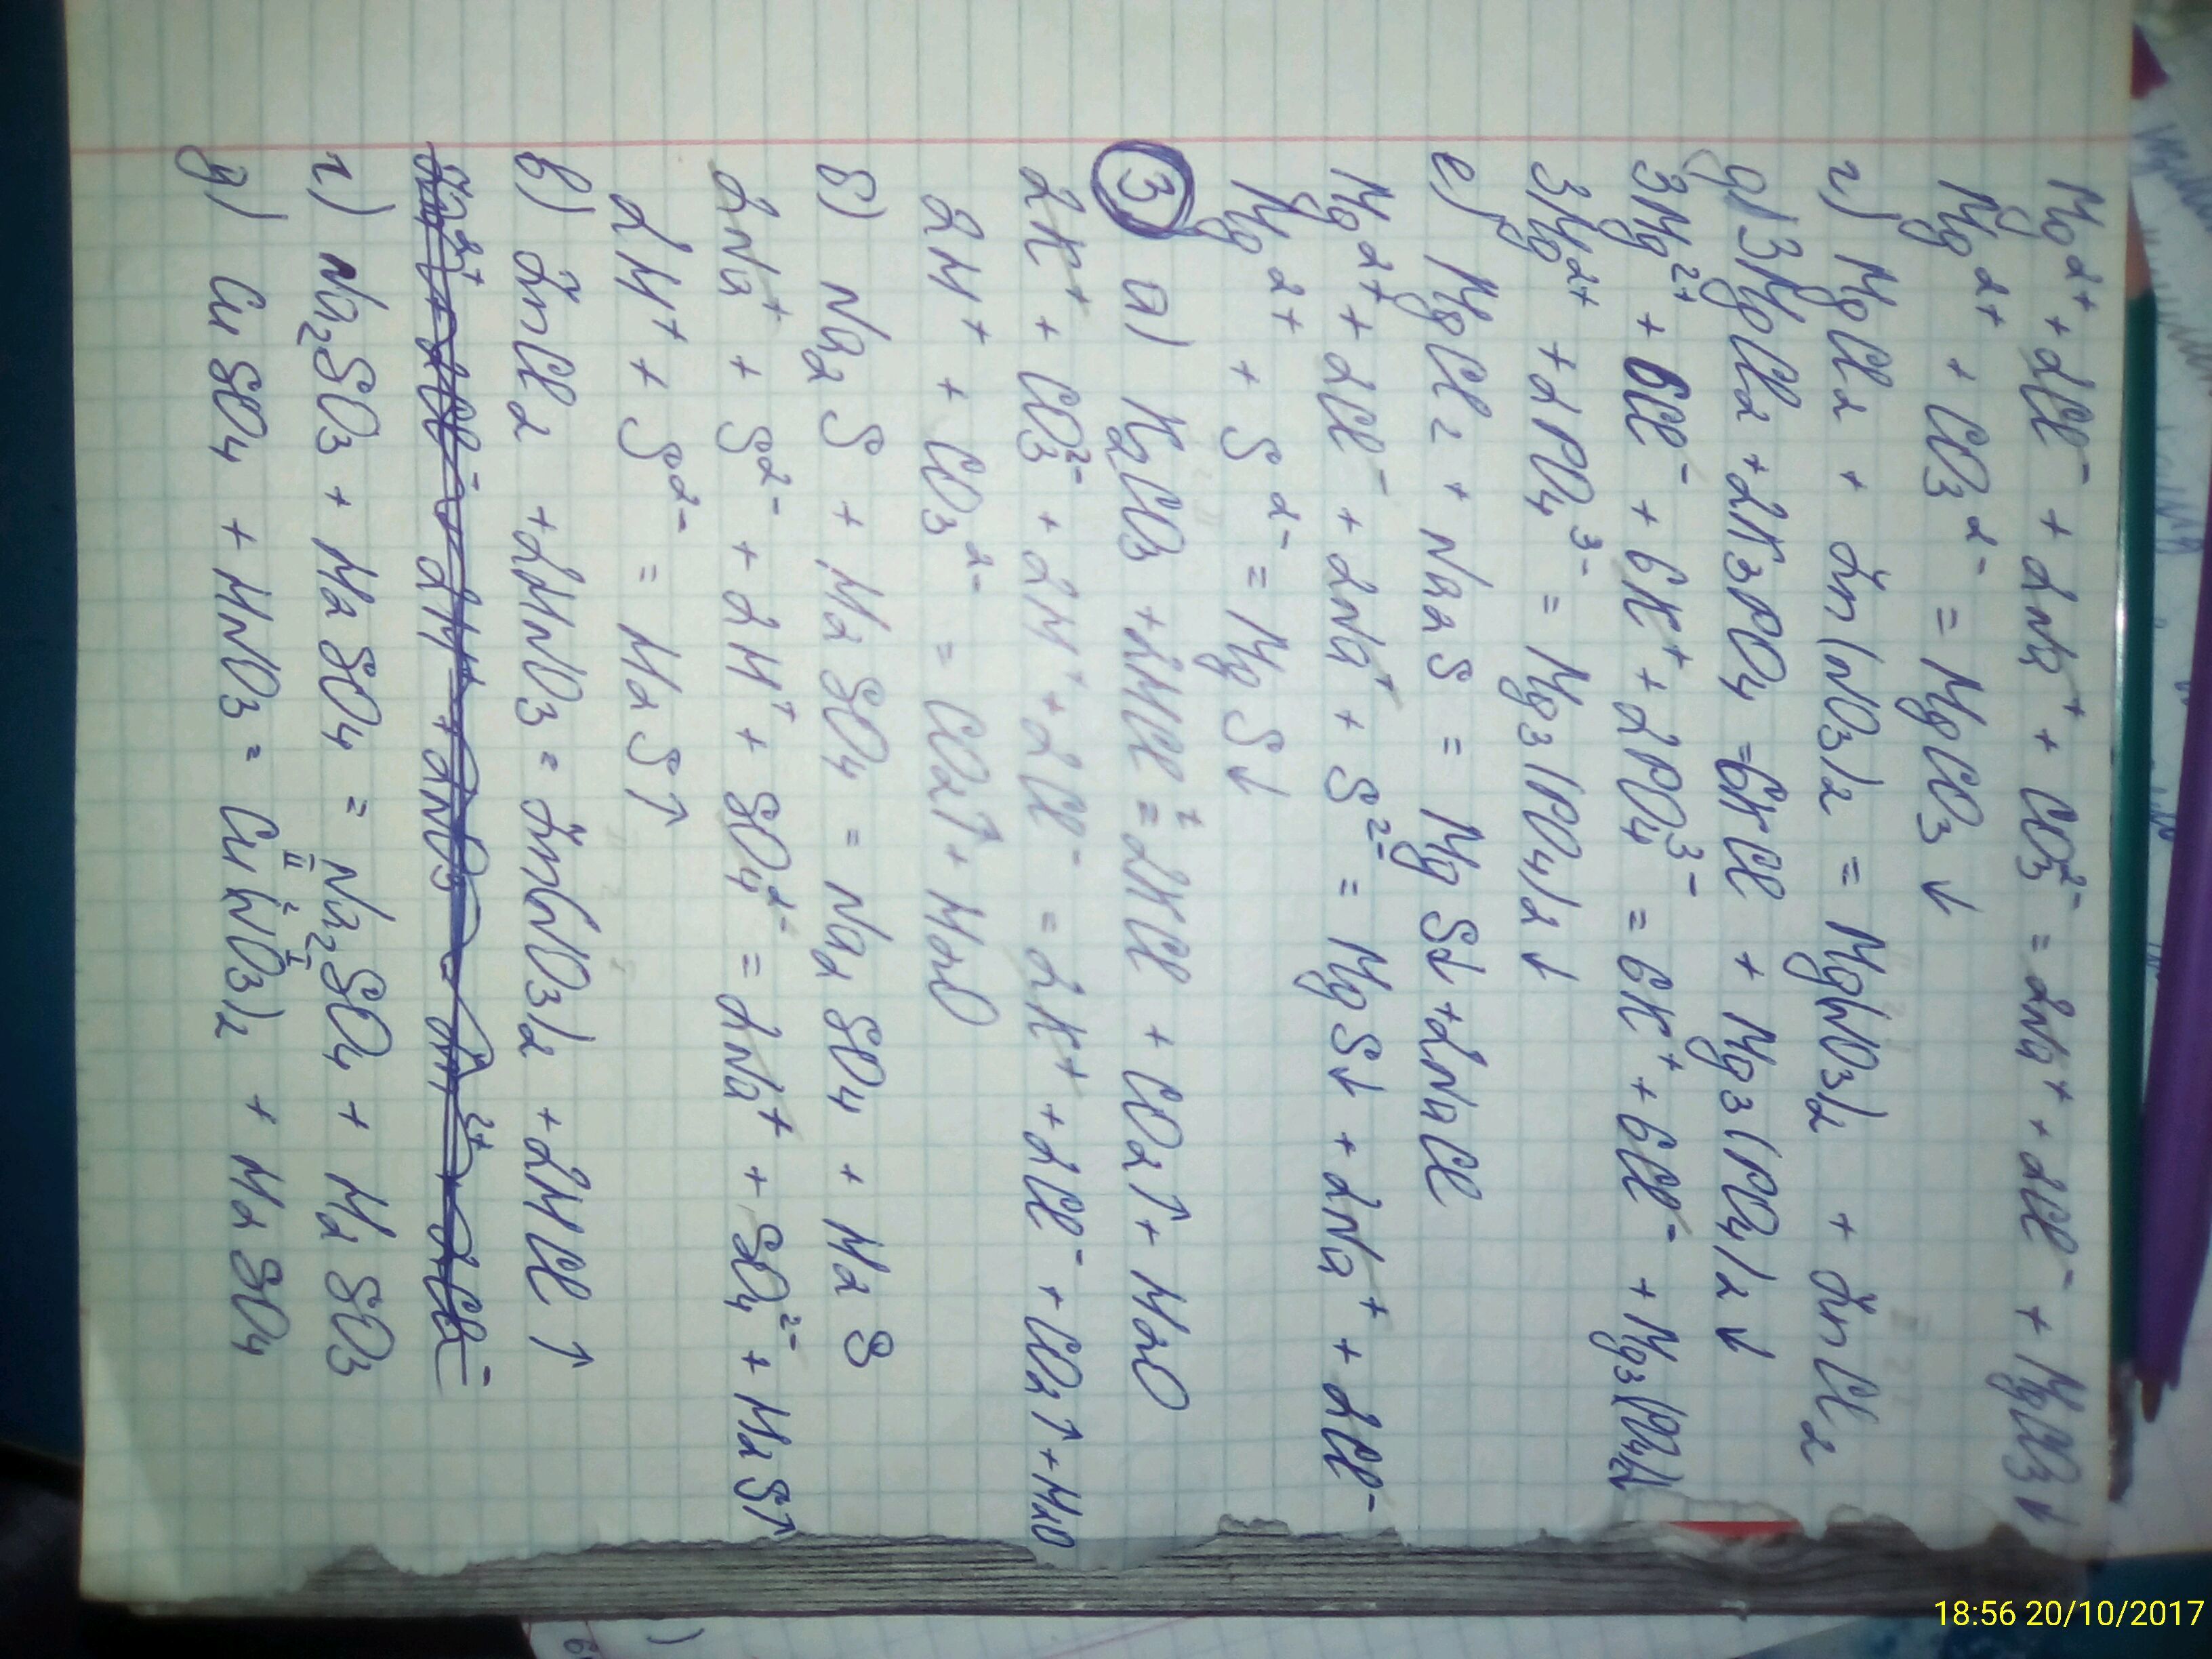 Mg²⁺ + 2Cl⁻ + 2Na⁺ + CO₃²⁻ = 2Na⁺ + 2Cl⁻ + MgCO₃↓
Mg²⁺ + CO₃²⁻ = MgCO₃↓
г) MgCl₂ + Zn(NO₃)₂ = Mg(NO₃)₂ + ZnCl₂
д) 3MgCl₂ + 2K₃PO₄ = 6KCl + Mg₃(PO₄)₂↓
3Mg²⁺ + 6Cl⁻ + 6K⁺ + 2PO₄³⁻ = 6K⁺ + 6Cl⁻ + Mg₃(PO₄)₂↓
3Mg²⁺ + 2PO₄³⁻ = Mg₃(PO₄)₂↓
е) MgCl₂ + Na₂S = MgS↓ + 2NaCl
Mg²⁺ + 2Cl⁻ + 2Na⁺ + S²⁻ = MgS↓ + 2Na⁺ + 2Cl⁻
Mg²⁺ + S²⁻ = MgS↓
3 а) K₂CO₃ + 2HCl = 2KCl + CO₂↑ + H₂O
2K⁺ + CO₃²⁻ + 2H⁺ + 2Cl⁻ = 2K⁺ + 2Cl⁻ + CO₂↑ + H₂O
2H⁺ + CO₃²⁻ = CO₂↑ + H₂O
б) Na₂S + H₂SO₄ = Na₂SO₄ + H₂S
2Na⁺ + S²⁻ + 2H⁺ + SO₄²⁻ = 2Na⁺ + SO₄²⁻ + H₂S↑
2H⁺ + S²⁻ = H₂S↑
в) ZnCl₂ + 2HNO₃ = Zn(NO₃)₂ + 2HCl↑
г) Na₂SO₃ + H₂SO₄ = Na₂SO₄ + H₂SO₃
д) CuSO₄ + HNO₃ = Cu(NO₃)₂ + H₂SO₄
18:56 20/10/2017